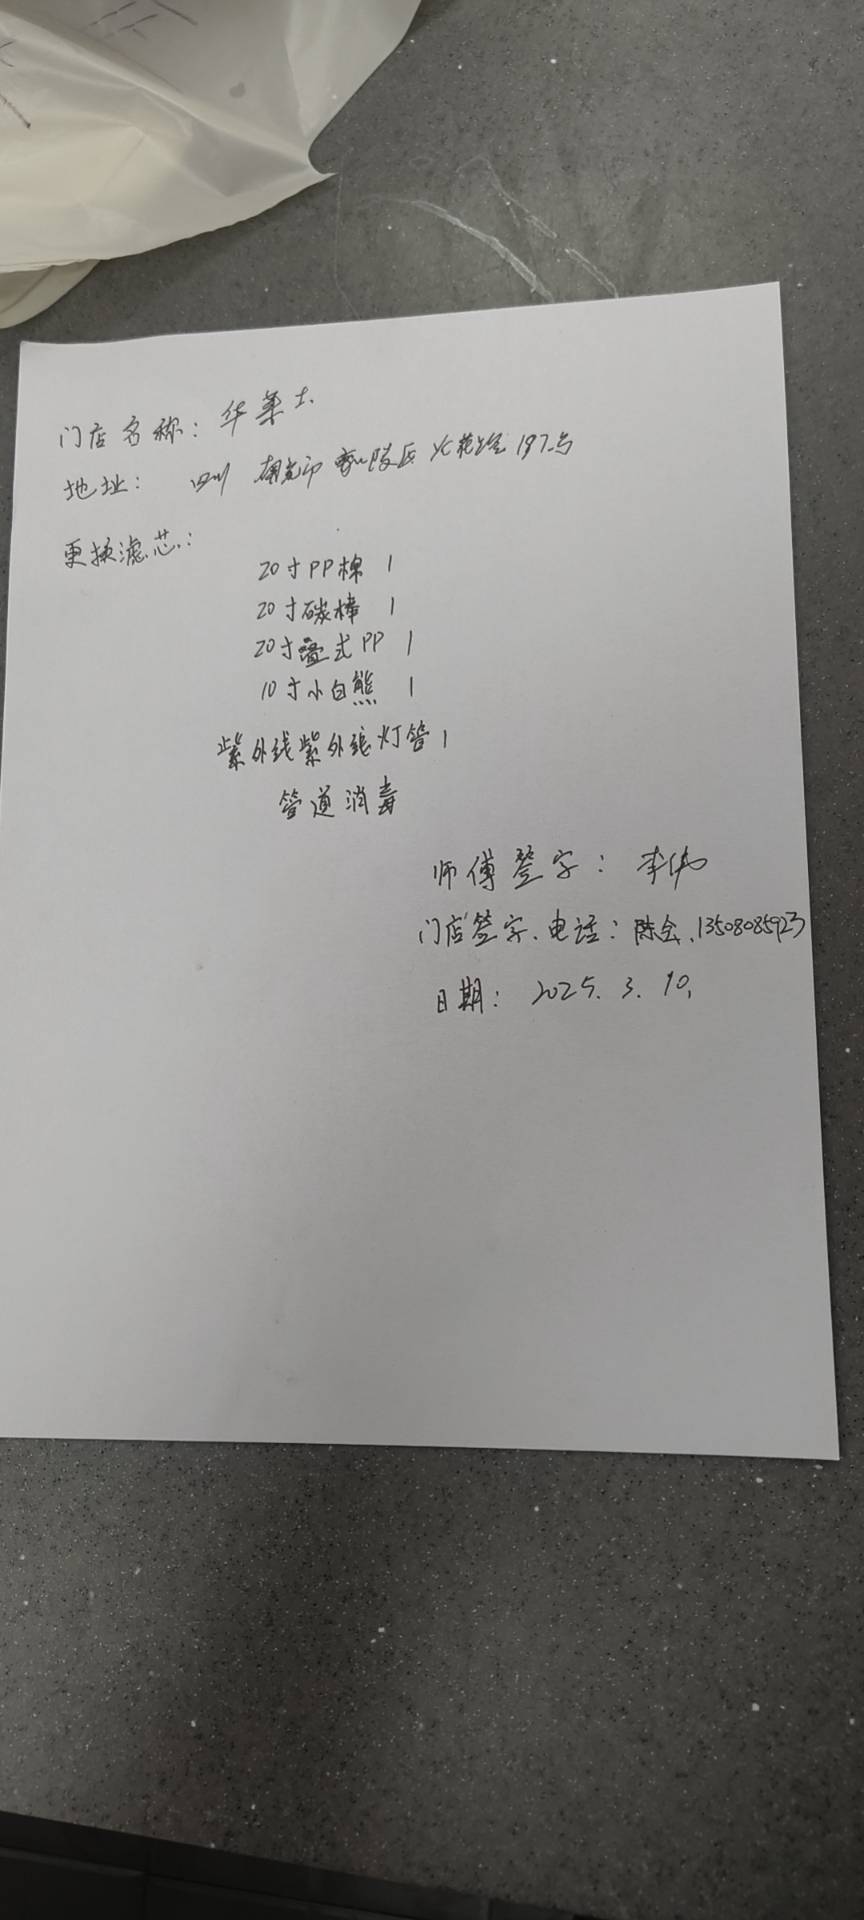 门店名称：华莱士
地址：四川 南充市 嘉陵区 火花 197号
更换滤芯：
20寸PP棉 1
20寸碳棒 1
20寸叠式PP 1
10寸小白熊 1
紫外线紫外线灯管 1
管道消毒
师傅签字：李伟
门店签字、电话：陈会、13508085923
日期：2025.3.10.